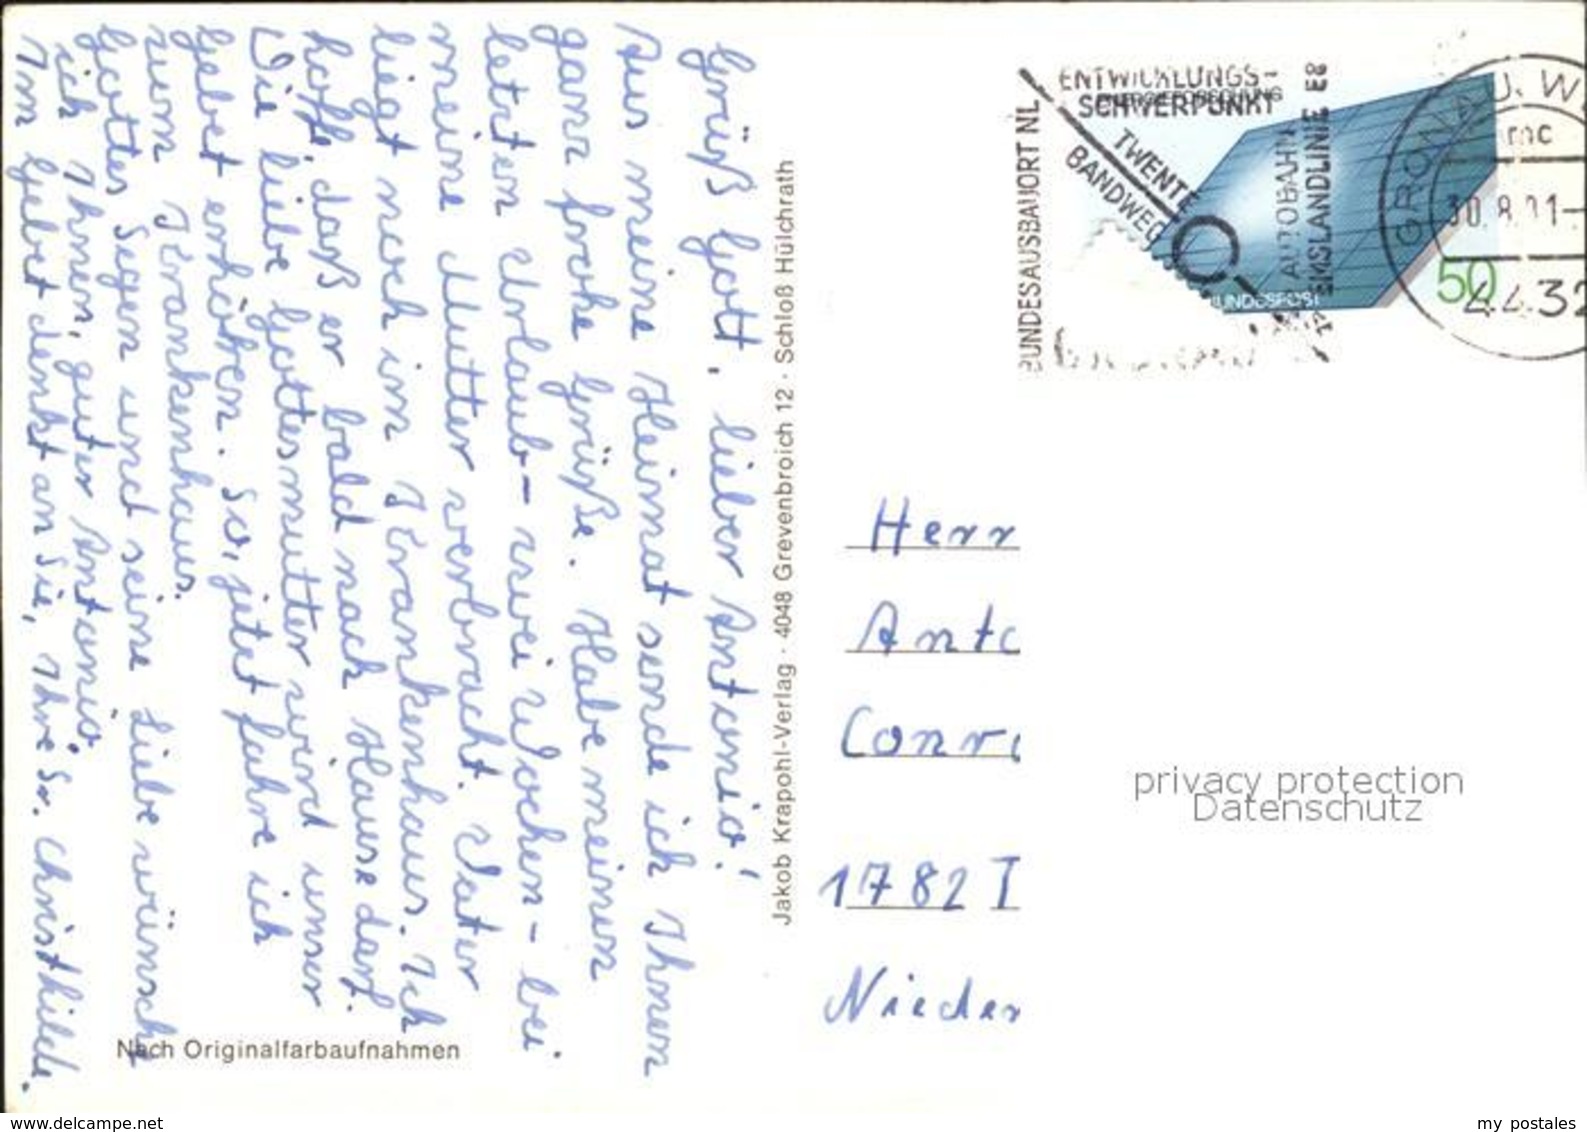 Grüß Gott, lieber Antonio!
Aus meine Heimat sende ich Ihnen
ganz frohe Grüße. Habe meinen
letzten Urlaub – zwei Wochen – bei
meine Mutter verbracht. Vater
liegt noch im Krankenhaus. Ich
hoffe, daß er bald nach Hause darf.
Die liebe Gottesmutter wird unser
Gebet erhören. So, jetzt fahre ich
zum Krankenhaus.
Gottes Segen und seine Liebe wünsche
ich Ihnen, guter Antonio.
Im Gebet denkt an Sie, Ihre Sr. Christhilde.
Nach Originalfarbaufnahmen
Jakob Krapohl-Verlag · 4048 Grevenbroich 12 · Schloß Hülchrath
BUNDESAUSBAUORT NL
ENTWICKLUNGS-
SCHWERPUNKT
TWENTE
BANDWEG
AUTOBAHN
EMSLANDLINIE E8
BUNDESPOST
50
GRONAU, W
mc
30.8.81-
4432
Herr
Anto
Conr
1782 T
Nieder
privacy protection
Datenschutz
www.delcampe.net
my postales